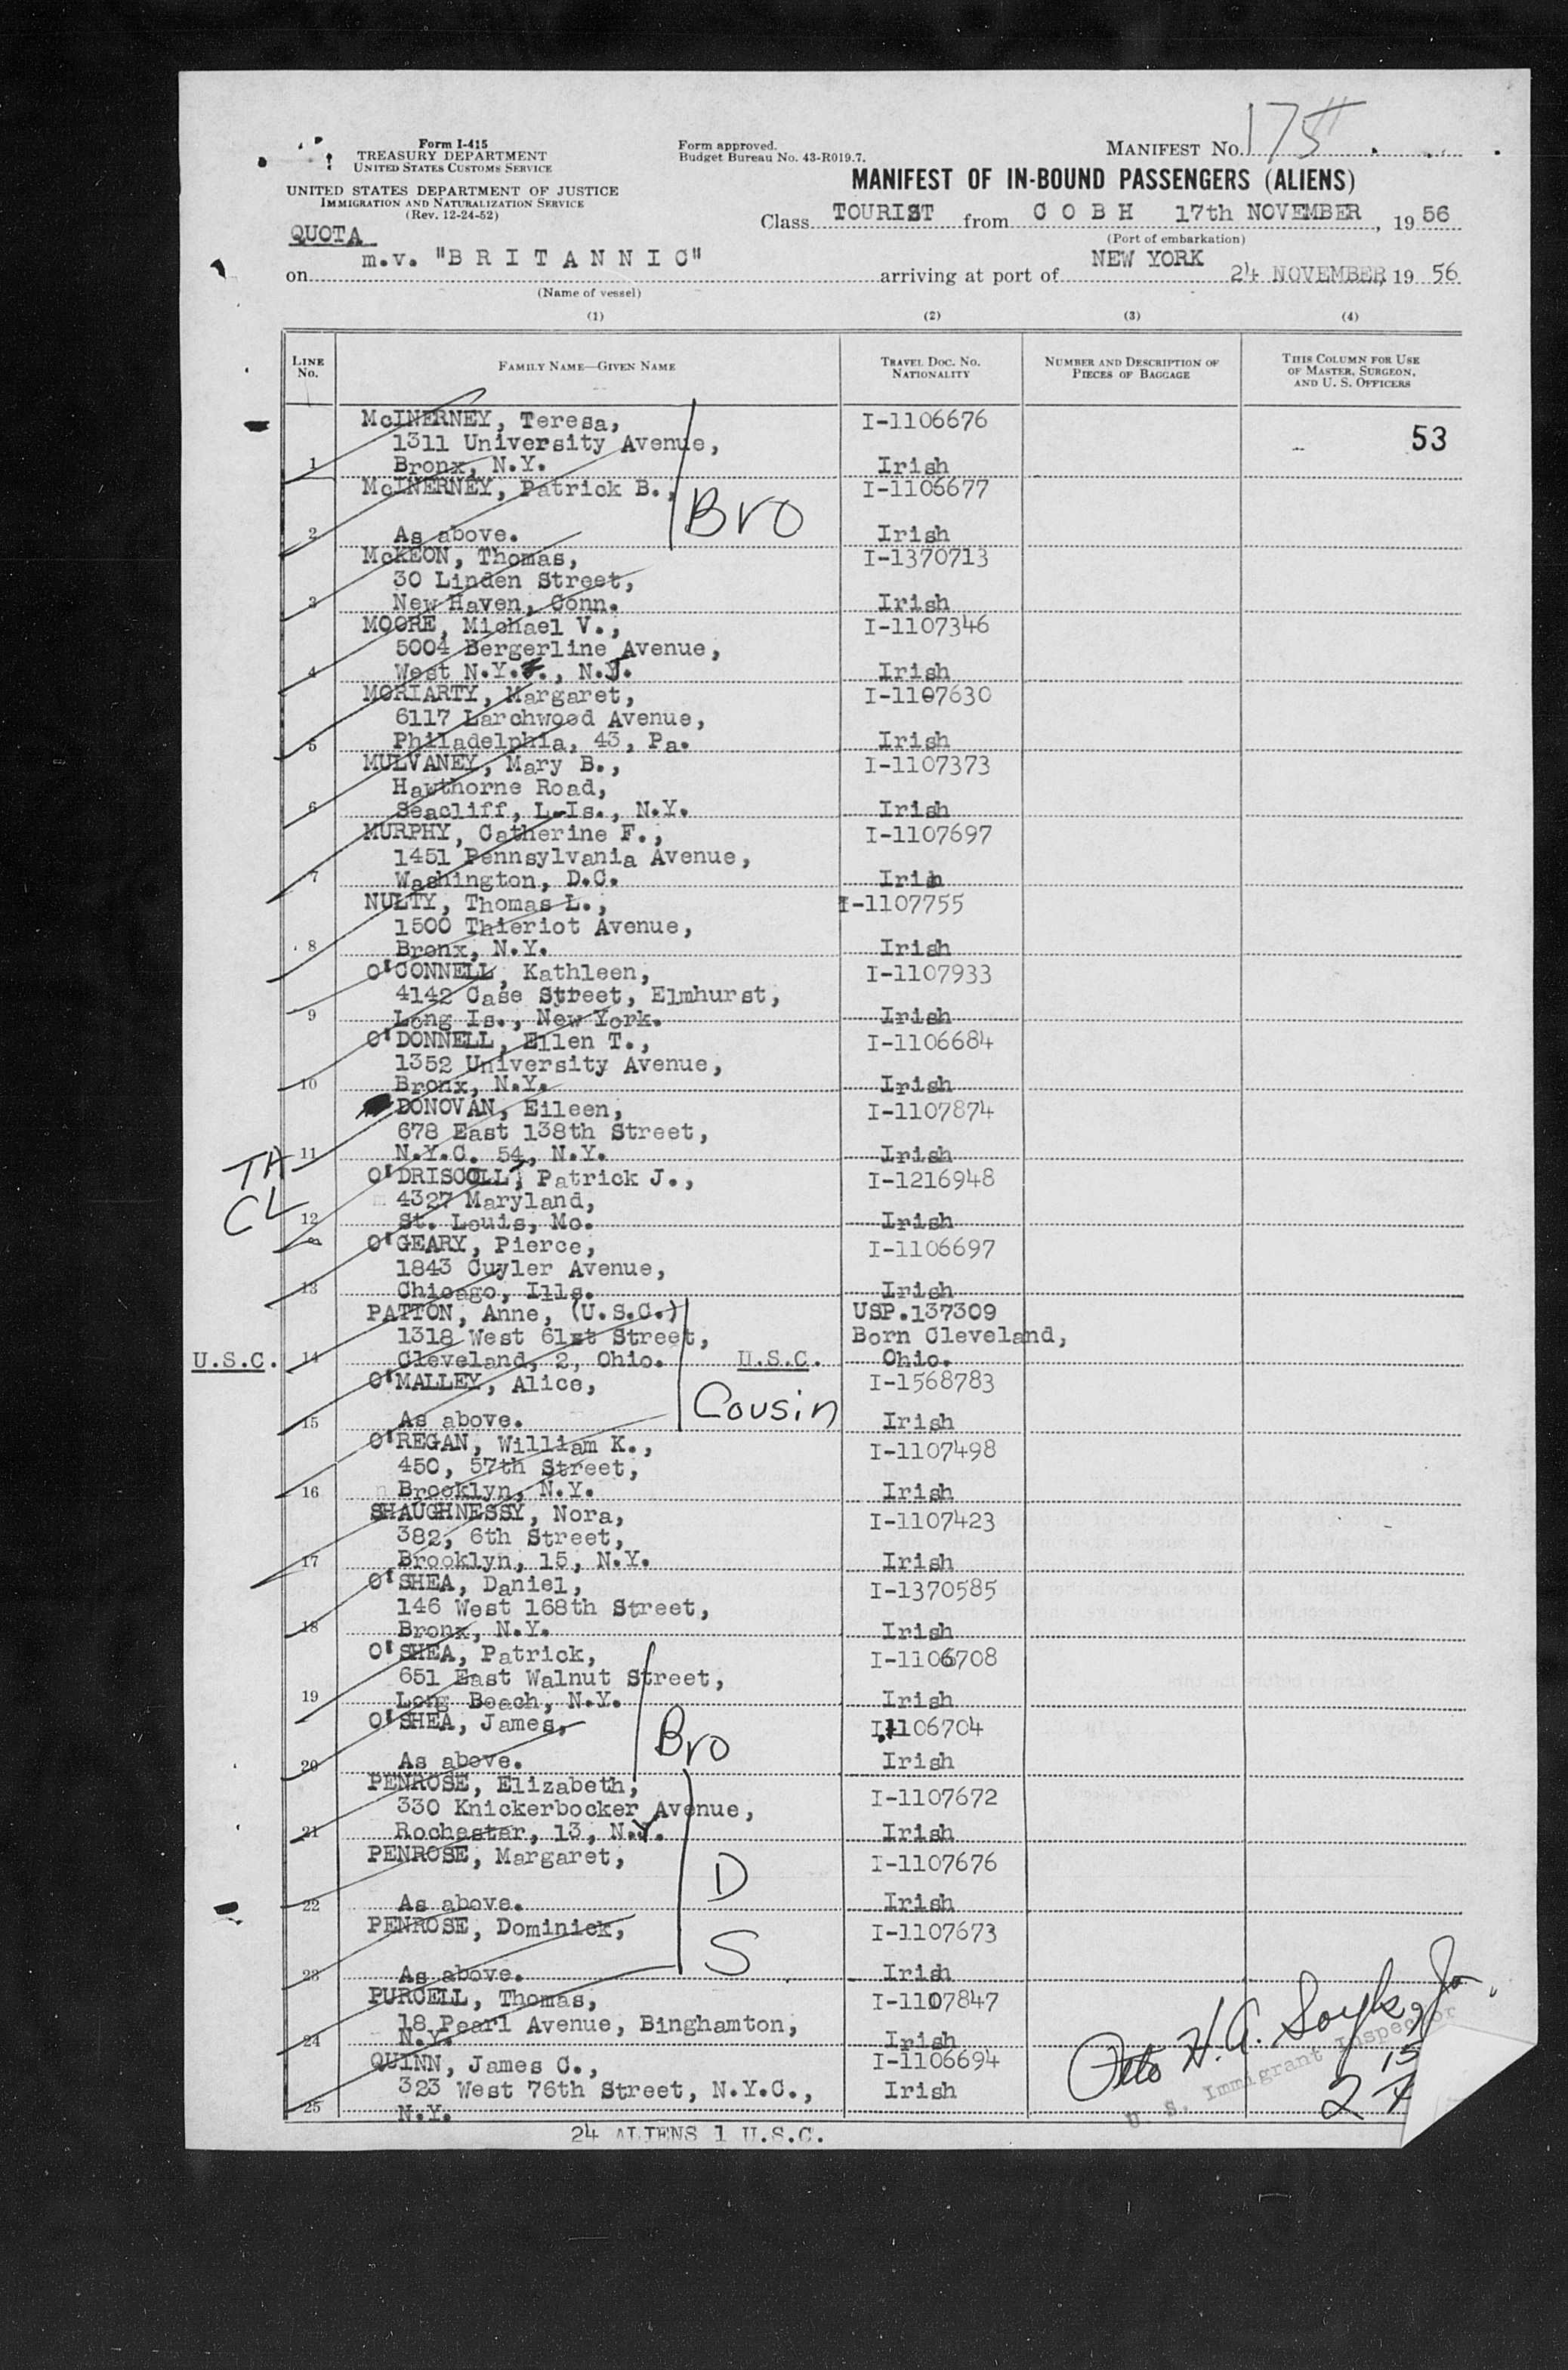 Form I-415
TREASURY DEPARTMENT
UNITED STATES CUSTOMS SERVICE
UNITED STATES DEPARTMENT OF JUSTICE
IMMIGRATION AND NATURALIZATION SERVICE
(Rev. 12-24-52)
Form approved.
Budget Bureau No. 43-R019.7.
MANIFEST No. 175
MANIFEST OF IN-BOUND PASSENGERS (ALIENS)
Class TOURIST from C O B H 17th NOVEMBER, 1956
(Port of embarkation)
QUOTA
on m.v. "B R I T A N N I C" arriving at port of NEW YORK 24 NOVEMBER, 1956
(Name of vessel)
(1) (2) (3) (4)
LINE No. FAMILY NAME—GIVEN NAME TRAVEL DOC. No. NATIONALITY NUMBER AND DESCRIPTION OF PIECES OF BAGGAGE THIS COLUMN FOR USE OF MASTER, SURGEON, AND U. S. OFFICERS
McINERNEY, Teresa, I-1106676
1311 University Avenue, 53
1 Bronx, N.Y. Irish
McINERNEY, Patrick B., I-1106677
Bro
2 As above. Irish
McKEON, Thomas, I-1370713
30 Linden Street,
3 New Haven, Conn. Irish
MOORE, Michael V., I-1107346
5004 Bergerline Avenue,
4 West N.Y., N.J. Irish
MORIARTY, Margaret, I-1107630
6117 Larchwood Avenue,
5 Philadelphia, 43, Pa. Irish
MULVANEY, Mary B., I-1107373
Hawthorne Road,
6 Seacliff, L.Is., N.Y. Irish
MURPHY, Catherine F., I-1107697
1451 Pennsylvania Avenue,
7 Washington, D.C. Irish
NULTY, Thomas L., I-1107755
1500 Thieriot Avenue,
8 Bronx, N.Y. Irish
O'CONNELL, Kathleen, I-1107933
4142 Case Street, Elmhurst,
9 Long Is., New York. Irish
O'DONNELL, Ellen T., I-1106684
1352 University Avenue,
10 Bronx, N.Y. Irish
DONOVAN, Eileen, I-1107874
678 East 138th Street,
11 N.Y.C. 54, N.Y. Irish
TA
O'DRISCOLL, Patrick J., I-1216948
CL 4327 Maryland,
12 St. Louis, Mo. Irish
O'GEARY, Pierce, I-1106697
1843 Cuyler Avenue,
13 Chicago, Ills. Irish
PATTON, Anne, (U.S.C.) USP.137309
1318 West 61st Street, Born Cleveland,
U.S.C. 14 Cleveland, 2, Ohio. U.S.C. Ohio.
O'MALLEY, Alice, I-1568783
Cousin
15 As above. Irish
O'REGAN, William K., I-1107498
450, 57th Street,
16 Brooklyn, N.Y. Irish
SHAUGHNESSY, Nora, I-1107423
382, 6th Street,
17 Brooklyn, 15, N.Y. Irish
O'SHEA, Daniel, I-1370585
146 West 168th Street,
18 Bronx, N.Y. Irish
O'SHEA, Patrick, I-1106708
651 East Walnut Street,
19 Long Beach, N.Y. Irish
O'SHEA, James, I-1106704
Bro
20 As above. Irish
PENROSE, Elizabeth, I-1107672
330 Knickerbocker Avenue,
21 Rochester, 13, N.Y. Irish
PENROSE, Margaret, I-1107676
D
22 As above. Irish
PENROSE, Dominick, I-1107673
S
23 As above. Irish
PURCELL, Thomas, I-1107847
18 Pearl Avenue, Binghamton,
24 N.Y. Irish
QUINN, James C., I-1106694
323 West 76th Street, N.Y.C., Irish
25 N.Y.
U. S. Immigrant Inspector
24 ALIENS 1 U.S.C.